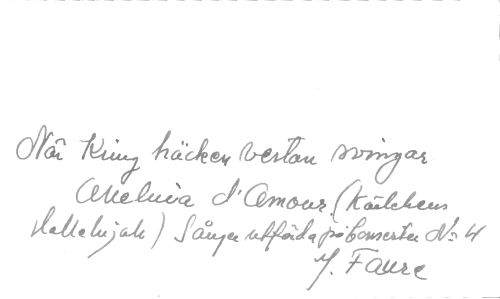 När Kring häcken vestan svingar
Alleluia d'Amour (Kärlekens
Hallelujah) Sånger utförda på Konserten No 4
J. Faure